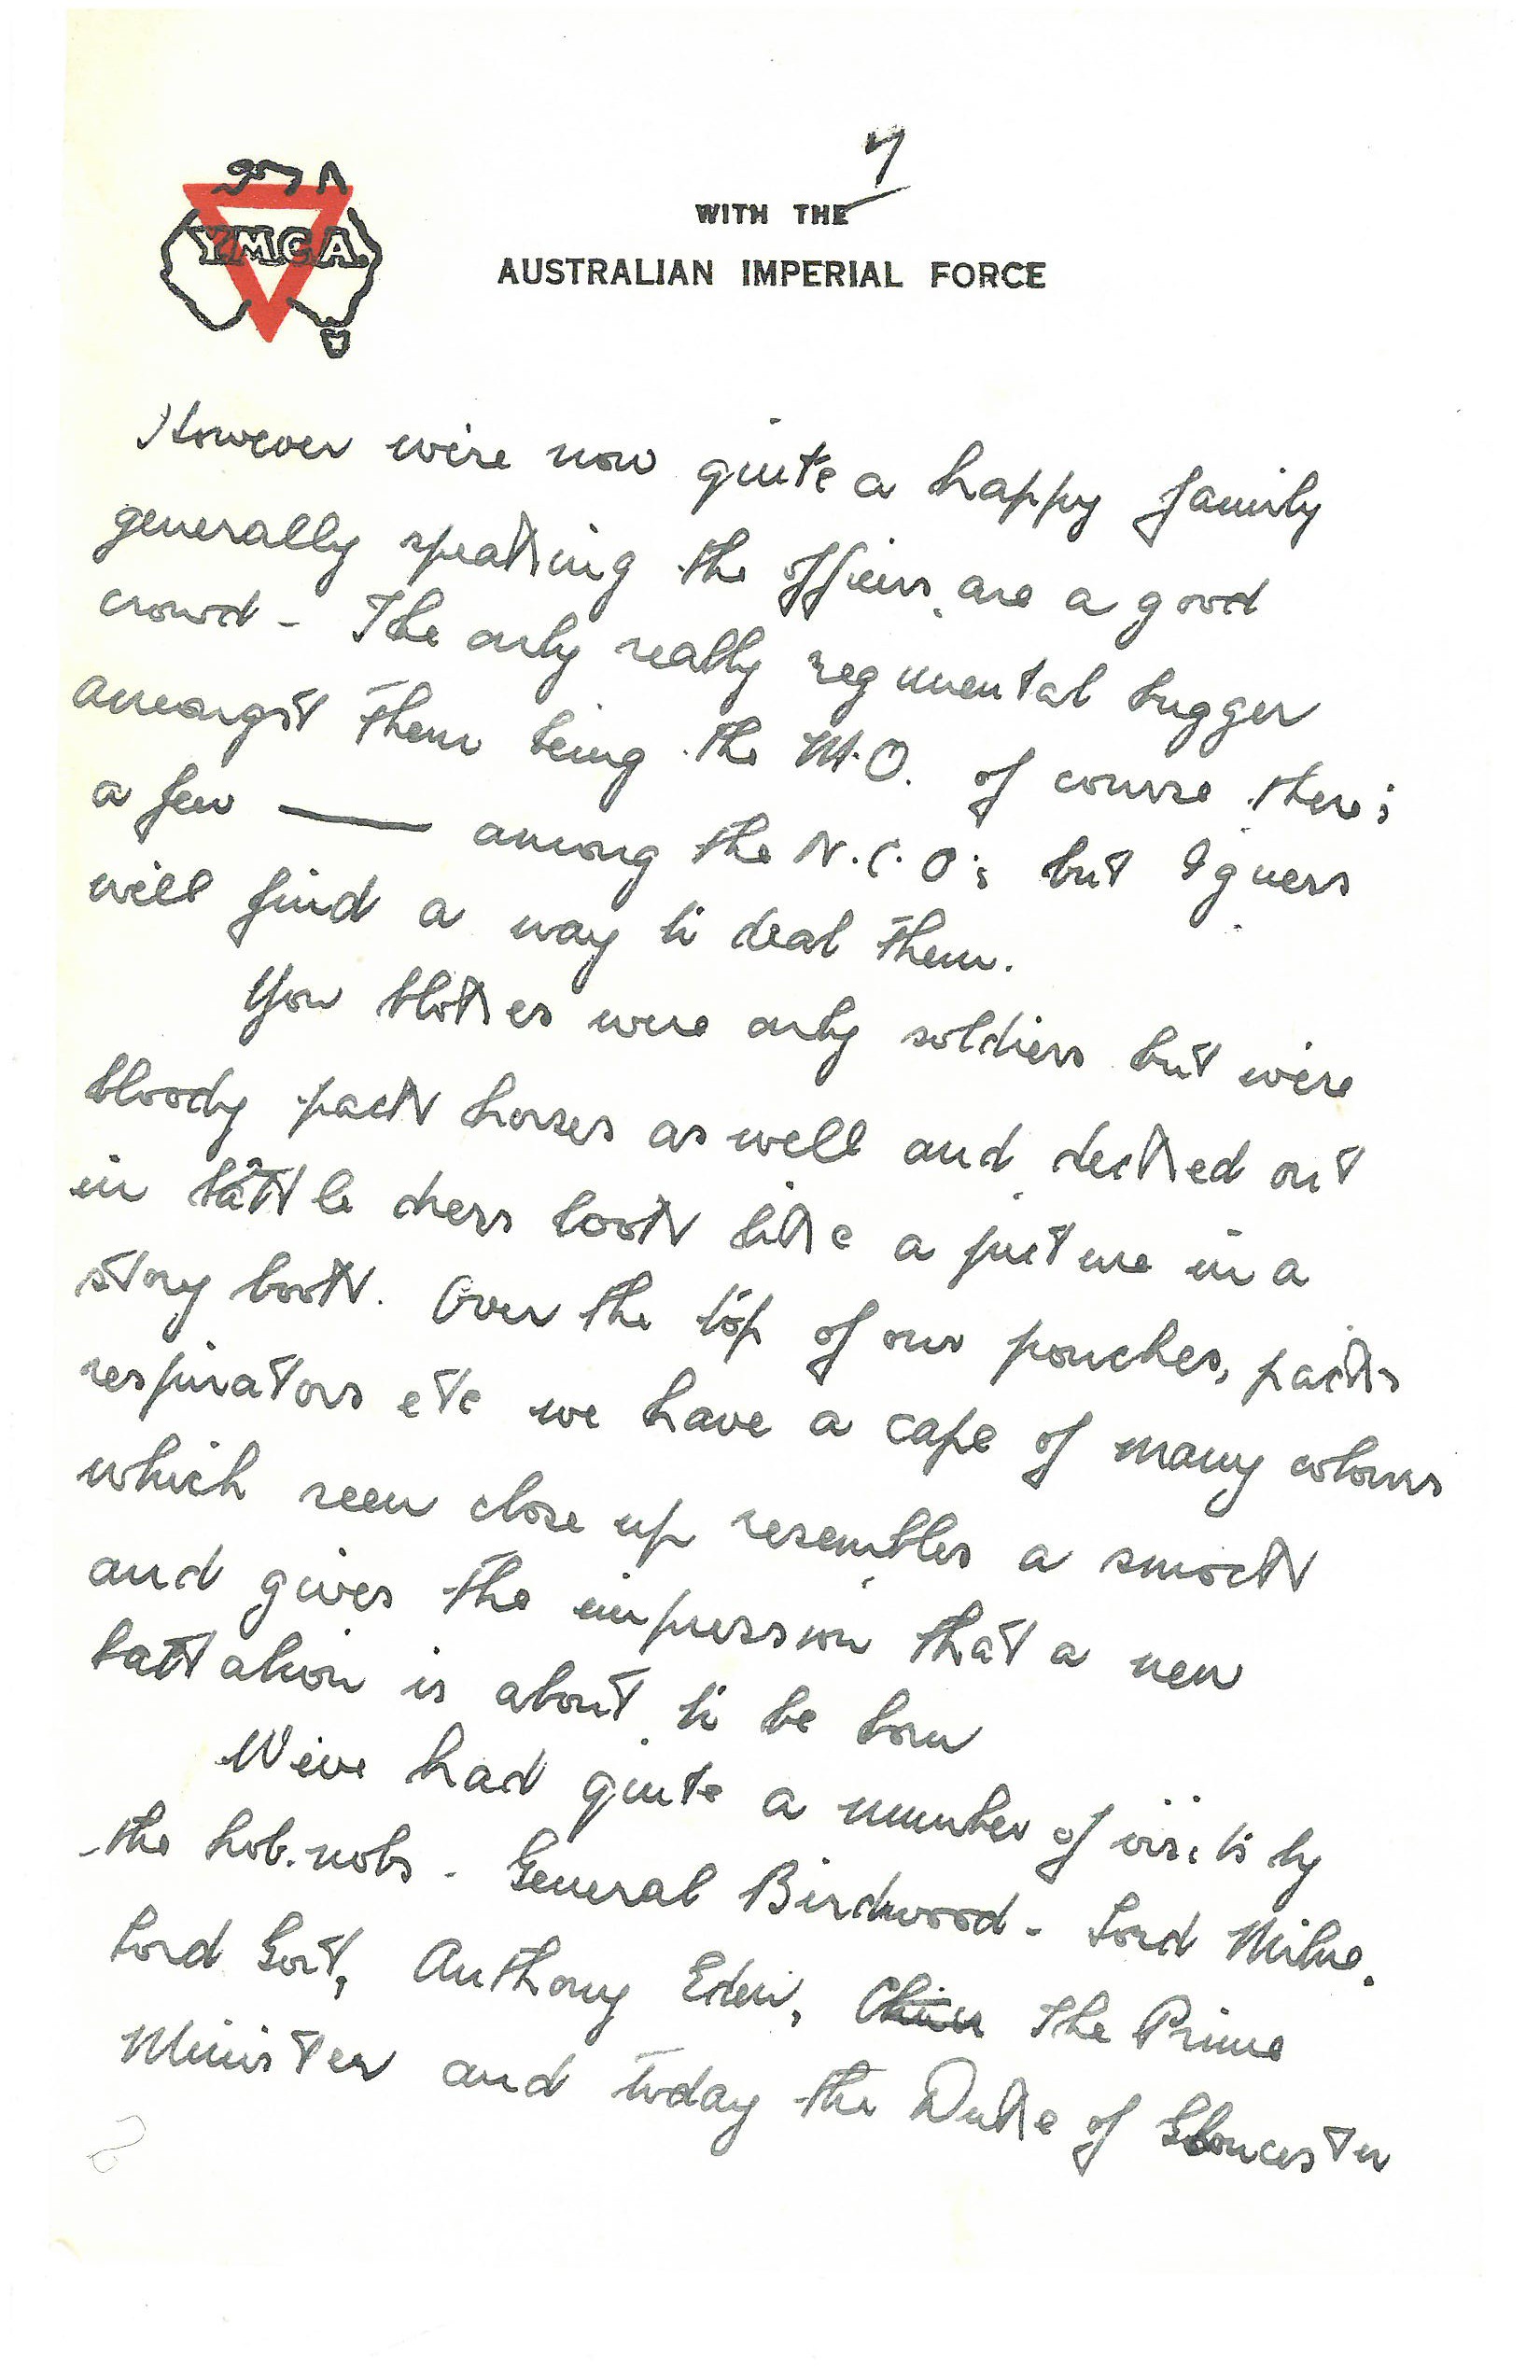 7
Y.M.C.A.
WITH THE
AUSTRALIAN IMPERIAL FORCE
However we're now quite a happy family
generally speaking the officers are a good
crowd - The only really regimental bugger
amongst them being the M.O. of course there's
a few —— among the N.C.O's but I guess
will find a way to deal them.
You blokes were only soldiers but we're
bloody pack horses as well and decked out
in battle dress look like a picture in a
story book. Over the top of our pouches, packs
respirators etc we have a cape of many colours
which seen close up resembles a smock
and gives the impression that a new
battalion is about to be born
We've had quite a number of visits by
the hob-nobs - General Birdwood - Lord Milne,
Lord Gort, Anthony Eden, The Prime
Minister and today the Duke of Gloucester